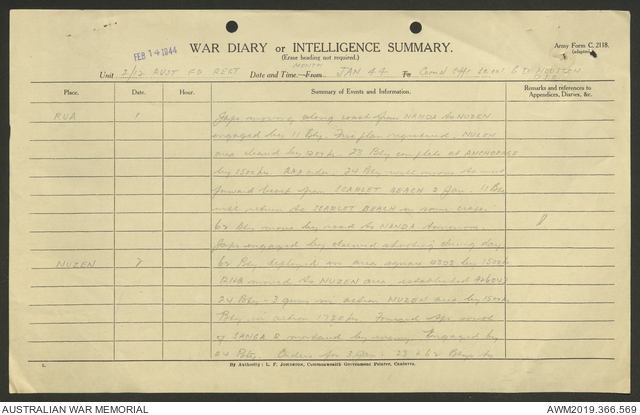 FEB 14 1944
WAR DIARY or INTELLIGENCE SUMMARY.
(Erase heading not required.)
Army Form C. 2118.
(adapted)
MONTH
Unit 2/12 AUST FD REGT Date and Time—From JAN 44 To Comd Offr Lt Col
Place. Date. Hour. Summary of Events and Information. Remarks and references to Appendices, Diaries, &c.
KUA 1 Japs moving along coast from NANDA to NUZEN
engaged by 11 Bty. Fire plan registered. NUZEN
area cleared by 1200 hrs. 23 Bty complete at ANCHORAGE
by 1500 hrs. 24 Bty will move to most
forward beach from SCARLET BEACH 2 Jan. 11 Bty
will return to SCARLET BEACH in same
62 Bty move by road to NANDA tomorrow.
Japs engaged by observed shooting during day
NUZEN 2 62 Bty deployed in area square by 1500 hrs
RHQ moved to NUZEN area established
24 Bty - 3 guns in action NUZEN area by 1500 hrs
Bty in action 1730 hrs. Forward Aps south
of SANGA R mortared by enemy. Engaged by
Bty. Orders for 3 Jan. 23 & 62 Btys to
2. By Authority: L. F. Johnston, Commonwealth Government Printer, Canberra.
AUSTRALIAN WAR MEMORIAL
AWM2019.366.569